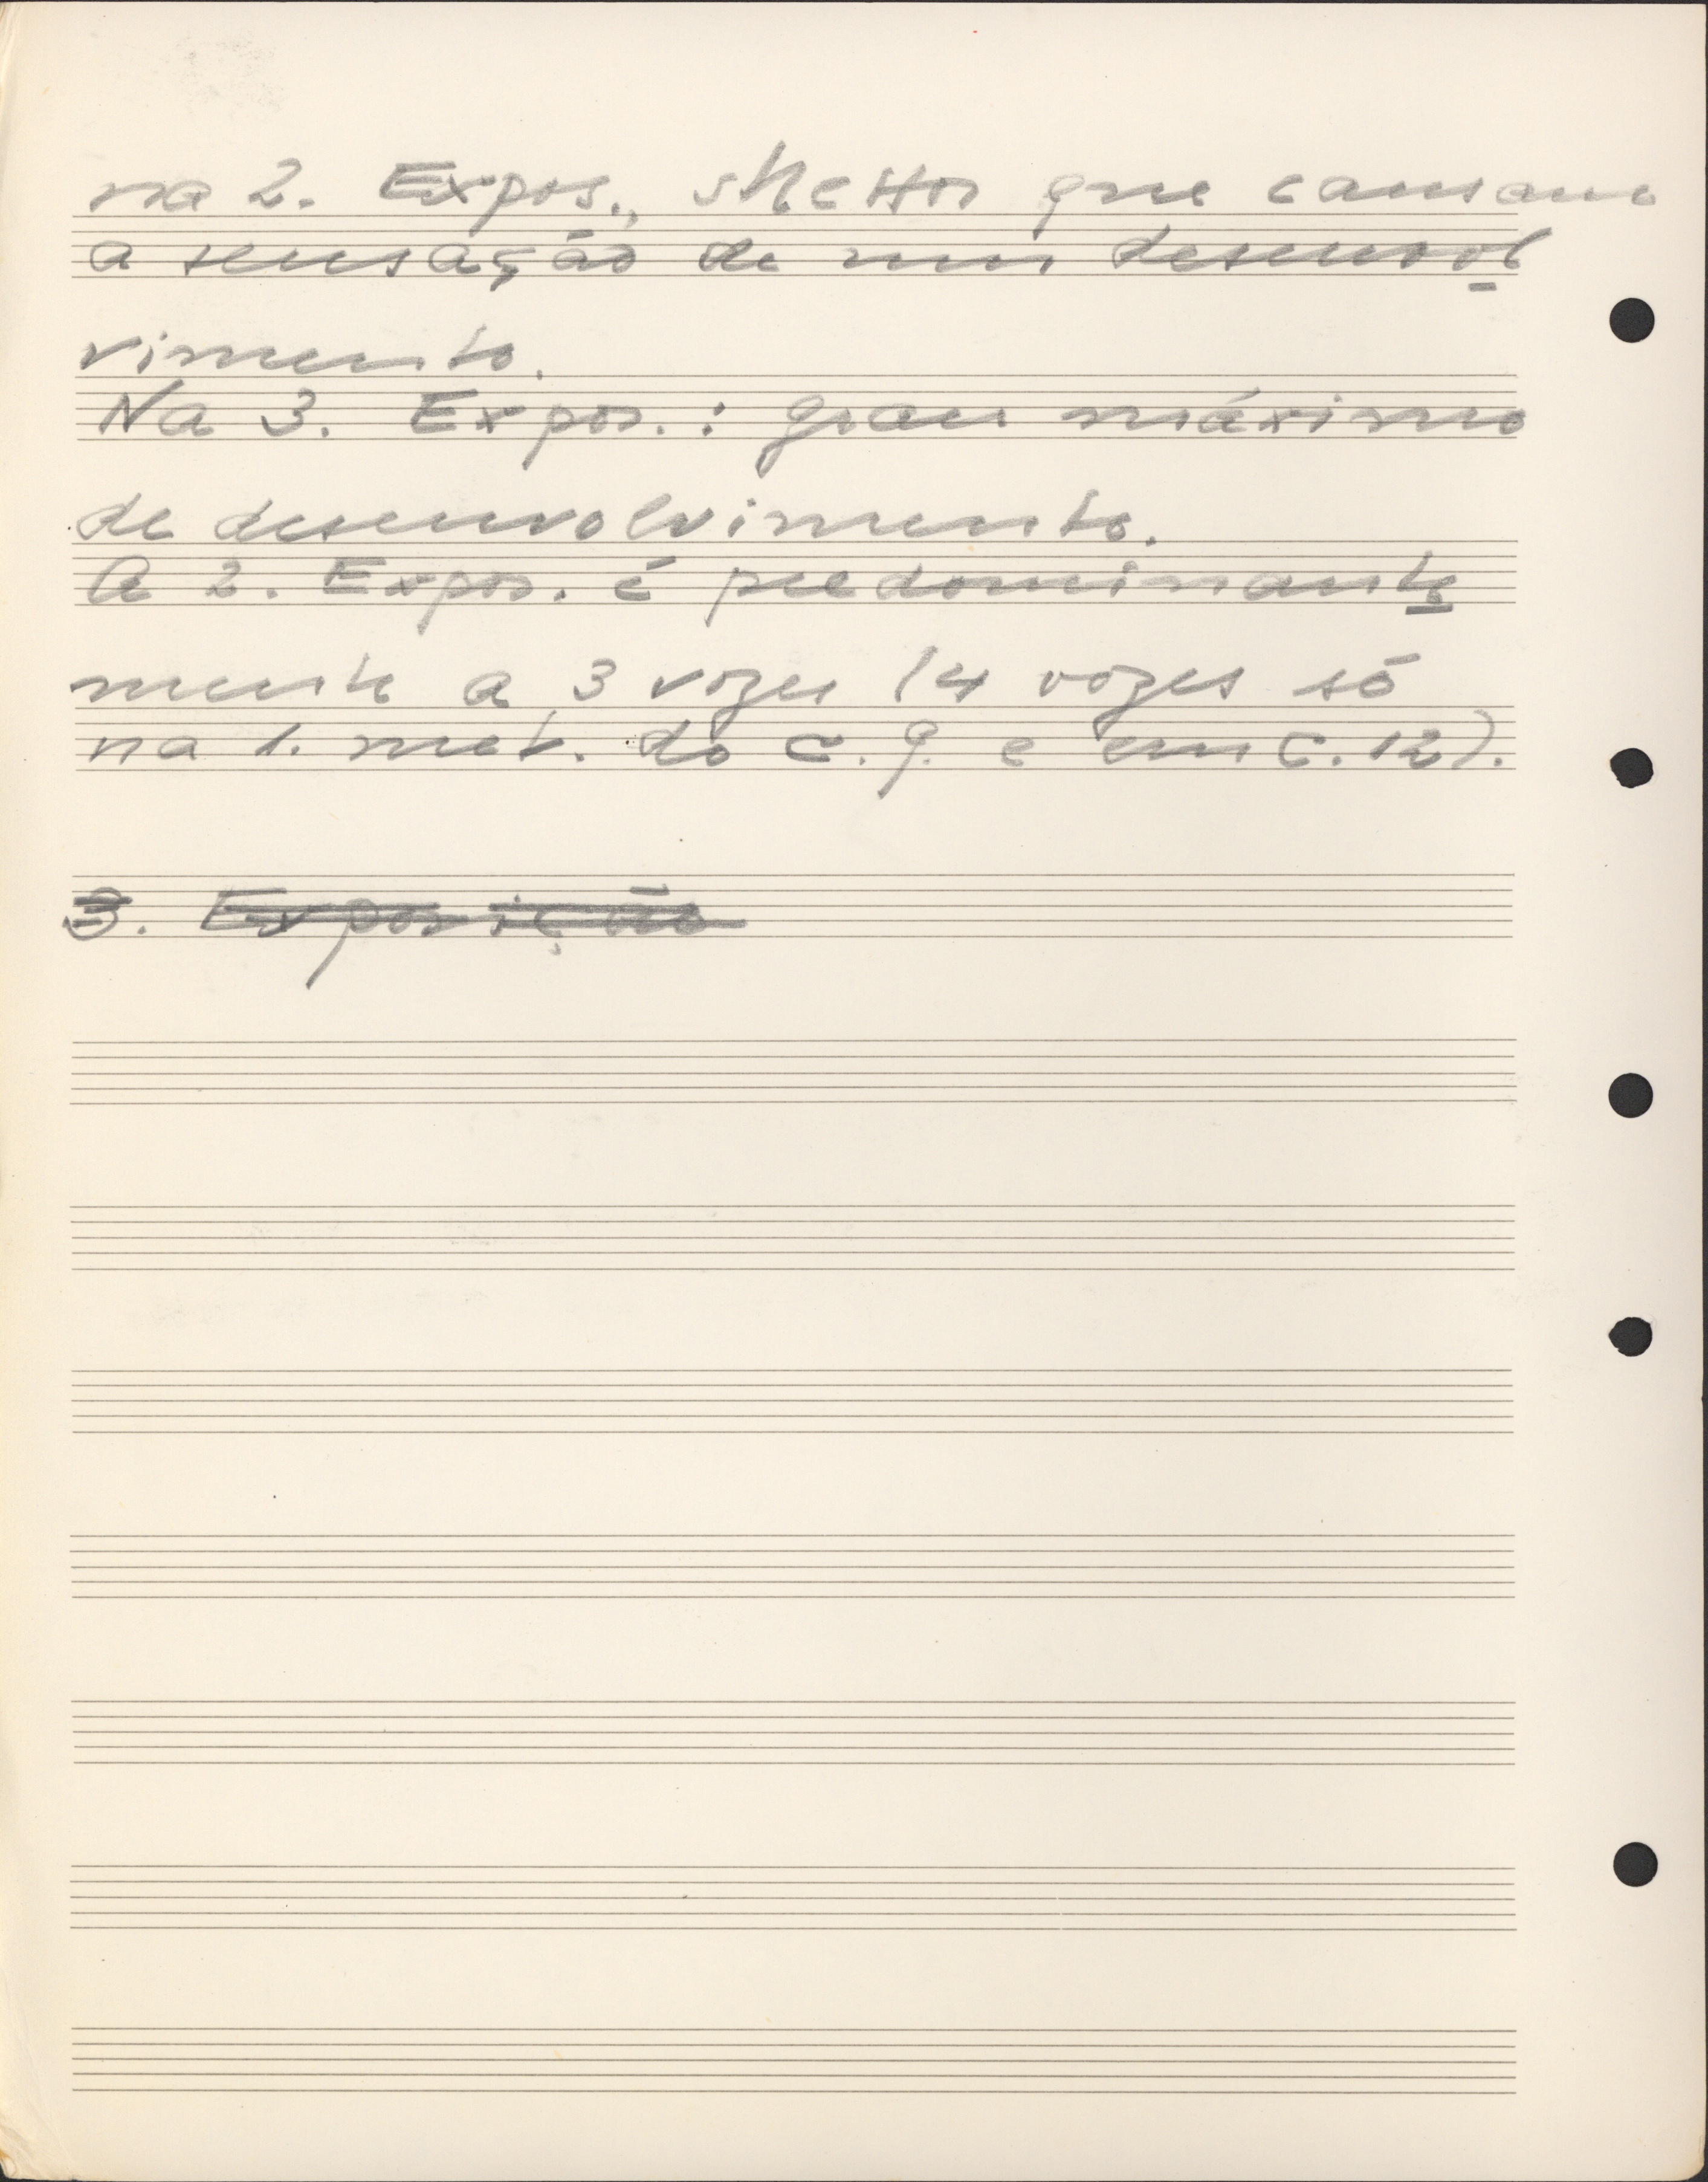 na 2. Expos., stretton que causam
a sensação de um desenvol
vimento.
Na 3. Expos.: grau máximo
de desenvolvimento.
A 2. Expos. é predominante
mente a 3 vozes (4 vozes só
na 1. met. do c. 9. e em c. 12).
3. Exposição